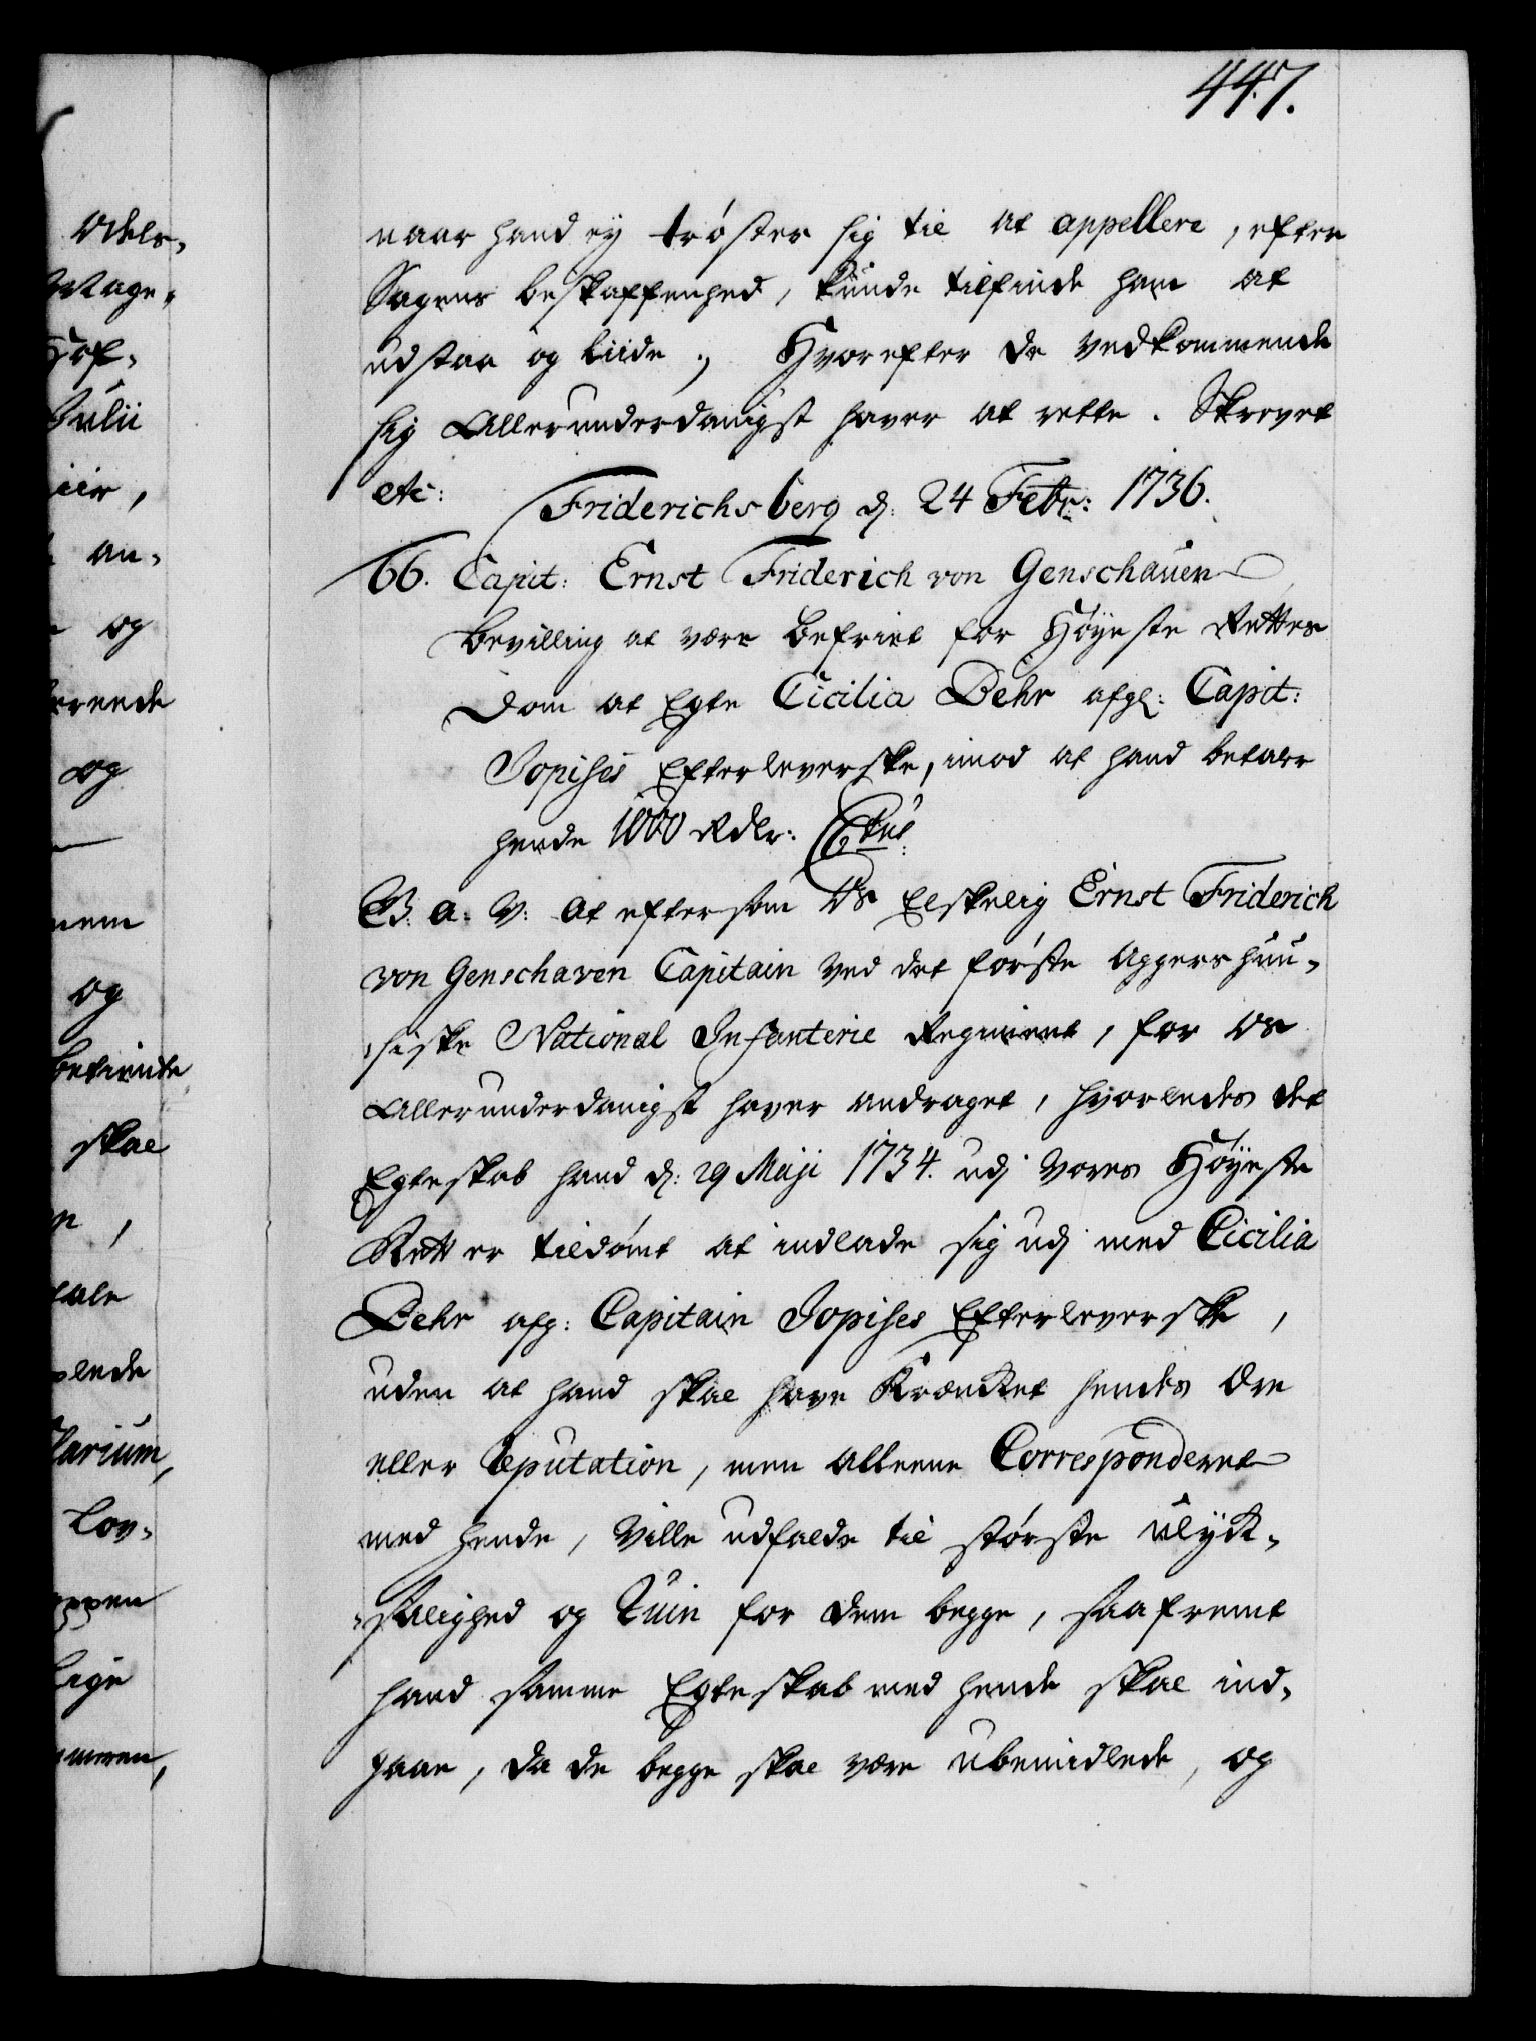 447.
naar hand ey trøster sig til at appellere, efter
Sagens beskaffenhed, kunde tilfinde ham at
udstaa og liide. Hvorefter de vedkommende
sig Allerunderdanigst haver at rette. Skrevet
etc: Friderichsberg d: 24 Febr: 1736.
66. Capit: Ernst Friderich von Genschauen
bevilling at være befriet for Høyeste Rettes
Dom at Egte Cicilia Behr afg: Capit:
Jopises Efterleverske, imod at hand betaler
hende 1000 Rdlr:
B. a. V: At eftersom Os Elskelig Ernst Friderich
von Genschaven Capitain ved det første Aggershuu-
siske National Infanterie Regiment, for Os
Allerunderdanigst haver andraget, hvorledes det
Egteskab hand d: 29 Maji 1734. udj Vores Høyeste
Rett er tildømt at indlade sig udj med Cicilia
Behr afg: Capitain Jopises Efterleverske,
uden at hand skal have Krænket hendes Ære
eller Reputation, men alleene Corresponderet
med hende, Ville udfalde til største ulyck-
salighed og Ruin for dem begge, saafremt
hand samme Egteskab med hende skal ind-
gaae, da de begge skal være ubemidlede, og
Odels-
Julii
an-
og
og
og
skal
Lov-